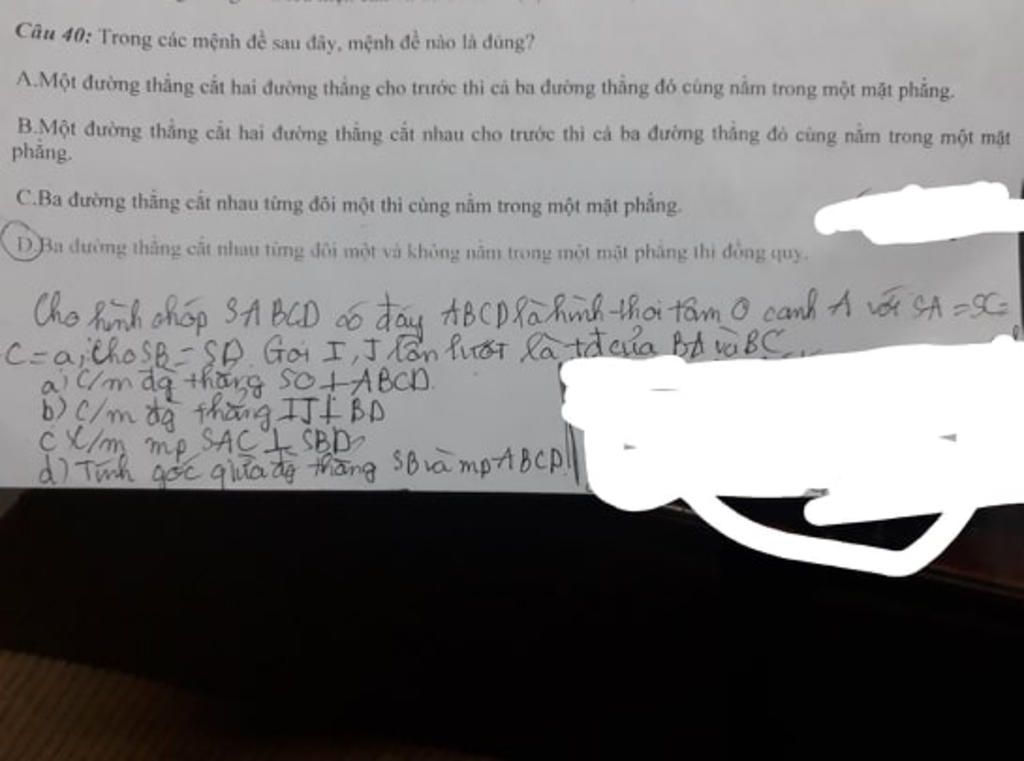 Câu 40: Trong các mệnh đề sau đây, mệnh đề nào là đúng?
A.Một đường thẳng cắt hai đường thẳng cho trước thì cả ba đường thẳng đó cùng nằm trong một mặt phẳng.
B.Một đường thẳng cắt hai đường thẳng cắt nhau cho trước thì cả ba đường thẳng đó cùng nằm trong một mặt
phẳng.
C.Ba đường thẳng cắt nhau từng đôi một thì cùng nằm trong một mặt phẳng.
D.Ba đường thẳng cắt nhau từng đôi một và không nằm trong một mặt phẳng thì đồng quy.
Cho hình chóp SABCD có đáy ABCD là hình thoi tâm O cạnh A với SA = SC =
C = a, Cho SB = SD. Gọi I, J lần lượt là tđ của BA và BC
a) C/m đg thẳng SO ⊥ ABCD.
b) C/m đg thẳng IJ ⊥ BD
c) C/m mp SAC ⊥ SBD
d) Tính góc giữa đg thẳng SB và mp ABCD